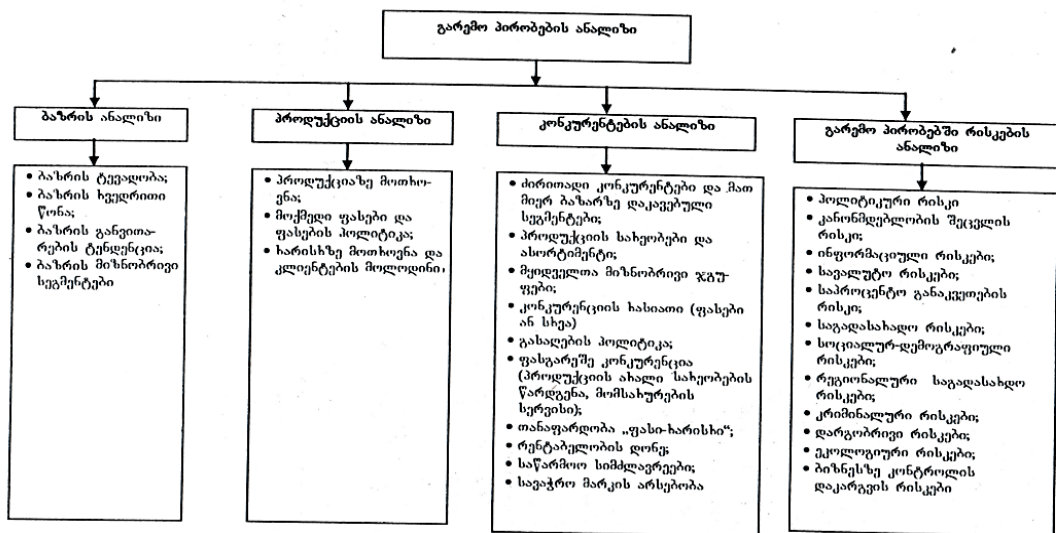 გარემო პირობების ანალიზი
ბაზრის ანალიზი
• ბაზრის ტევადობა;
• ბაზრის ხვედრითი
წონა;
• ბაზრის განვითა-
რების ტენდენცია;
• ბაზრის მიზნობრივი
სეგმენტები
პროდუქციის ანალიზი
• პროდუქციაზე მოთხო-
ვნა;
• მოქმედი ფასები და
ფასების პოლიტიკა;
• ხარისხზე მოთხოვნა და
კლიენტების მოლოდინი.
კონკურენტების ანალიზი
• ძირითადი კონკურენტები და მათ
მიერ ბაზარზე დაკავებული
სეგმენტები;
• პროდუქციის სახეობები და
ასორტიმენტი;
• მყიდველთა მიზნობრივი ჯგუ-
ფები;
• კონკურენციის ხასიათი (ფასები
ან სხვა)
• გასაღების პოლიტიკა;
• ფასგარეშე კონკურენცია
(პროდუქციის ახალი სახეობების
წარდგენა, მომსახურების
სერვისი);
• თანაფარდობა „ფასი-ხარისხი“;
• რენტაბელობის დონე;
• საწარმოო სიმძლავრეები;
• სავაჭრო მარკის არსებობა
გარემო პირობებში რისკების
ანალიზი
• პოლიტიკური რისკი
• კანონმდებლობის შეცვლის
რისკი;
• ინფორმაციული რისკები;
• სავალუტო რისკები;
• საპროცენტო განაკვეთების
რისკი;
• საგადასახადო რისკები;
• სოციალურ-დემოგრაფიული
რისკები;
• რეგიონალური საგადასახდო
რისკები;
• კრიმინალური რისკები;
• დარგობრივი რისკები;
• ეკოლოგიური რისკები;
• ბიზნესზე კონტროლის
დაკარგვის რისკები